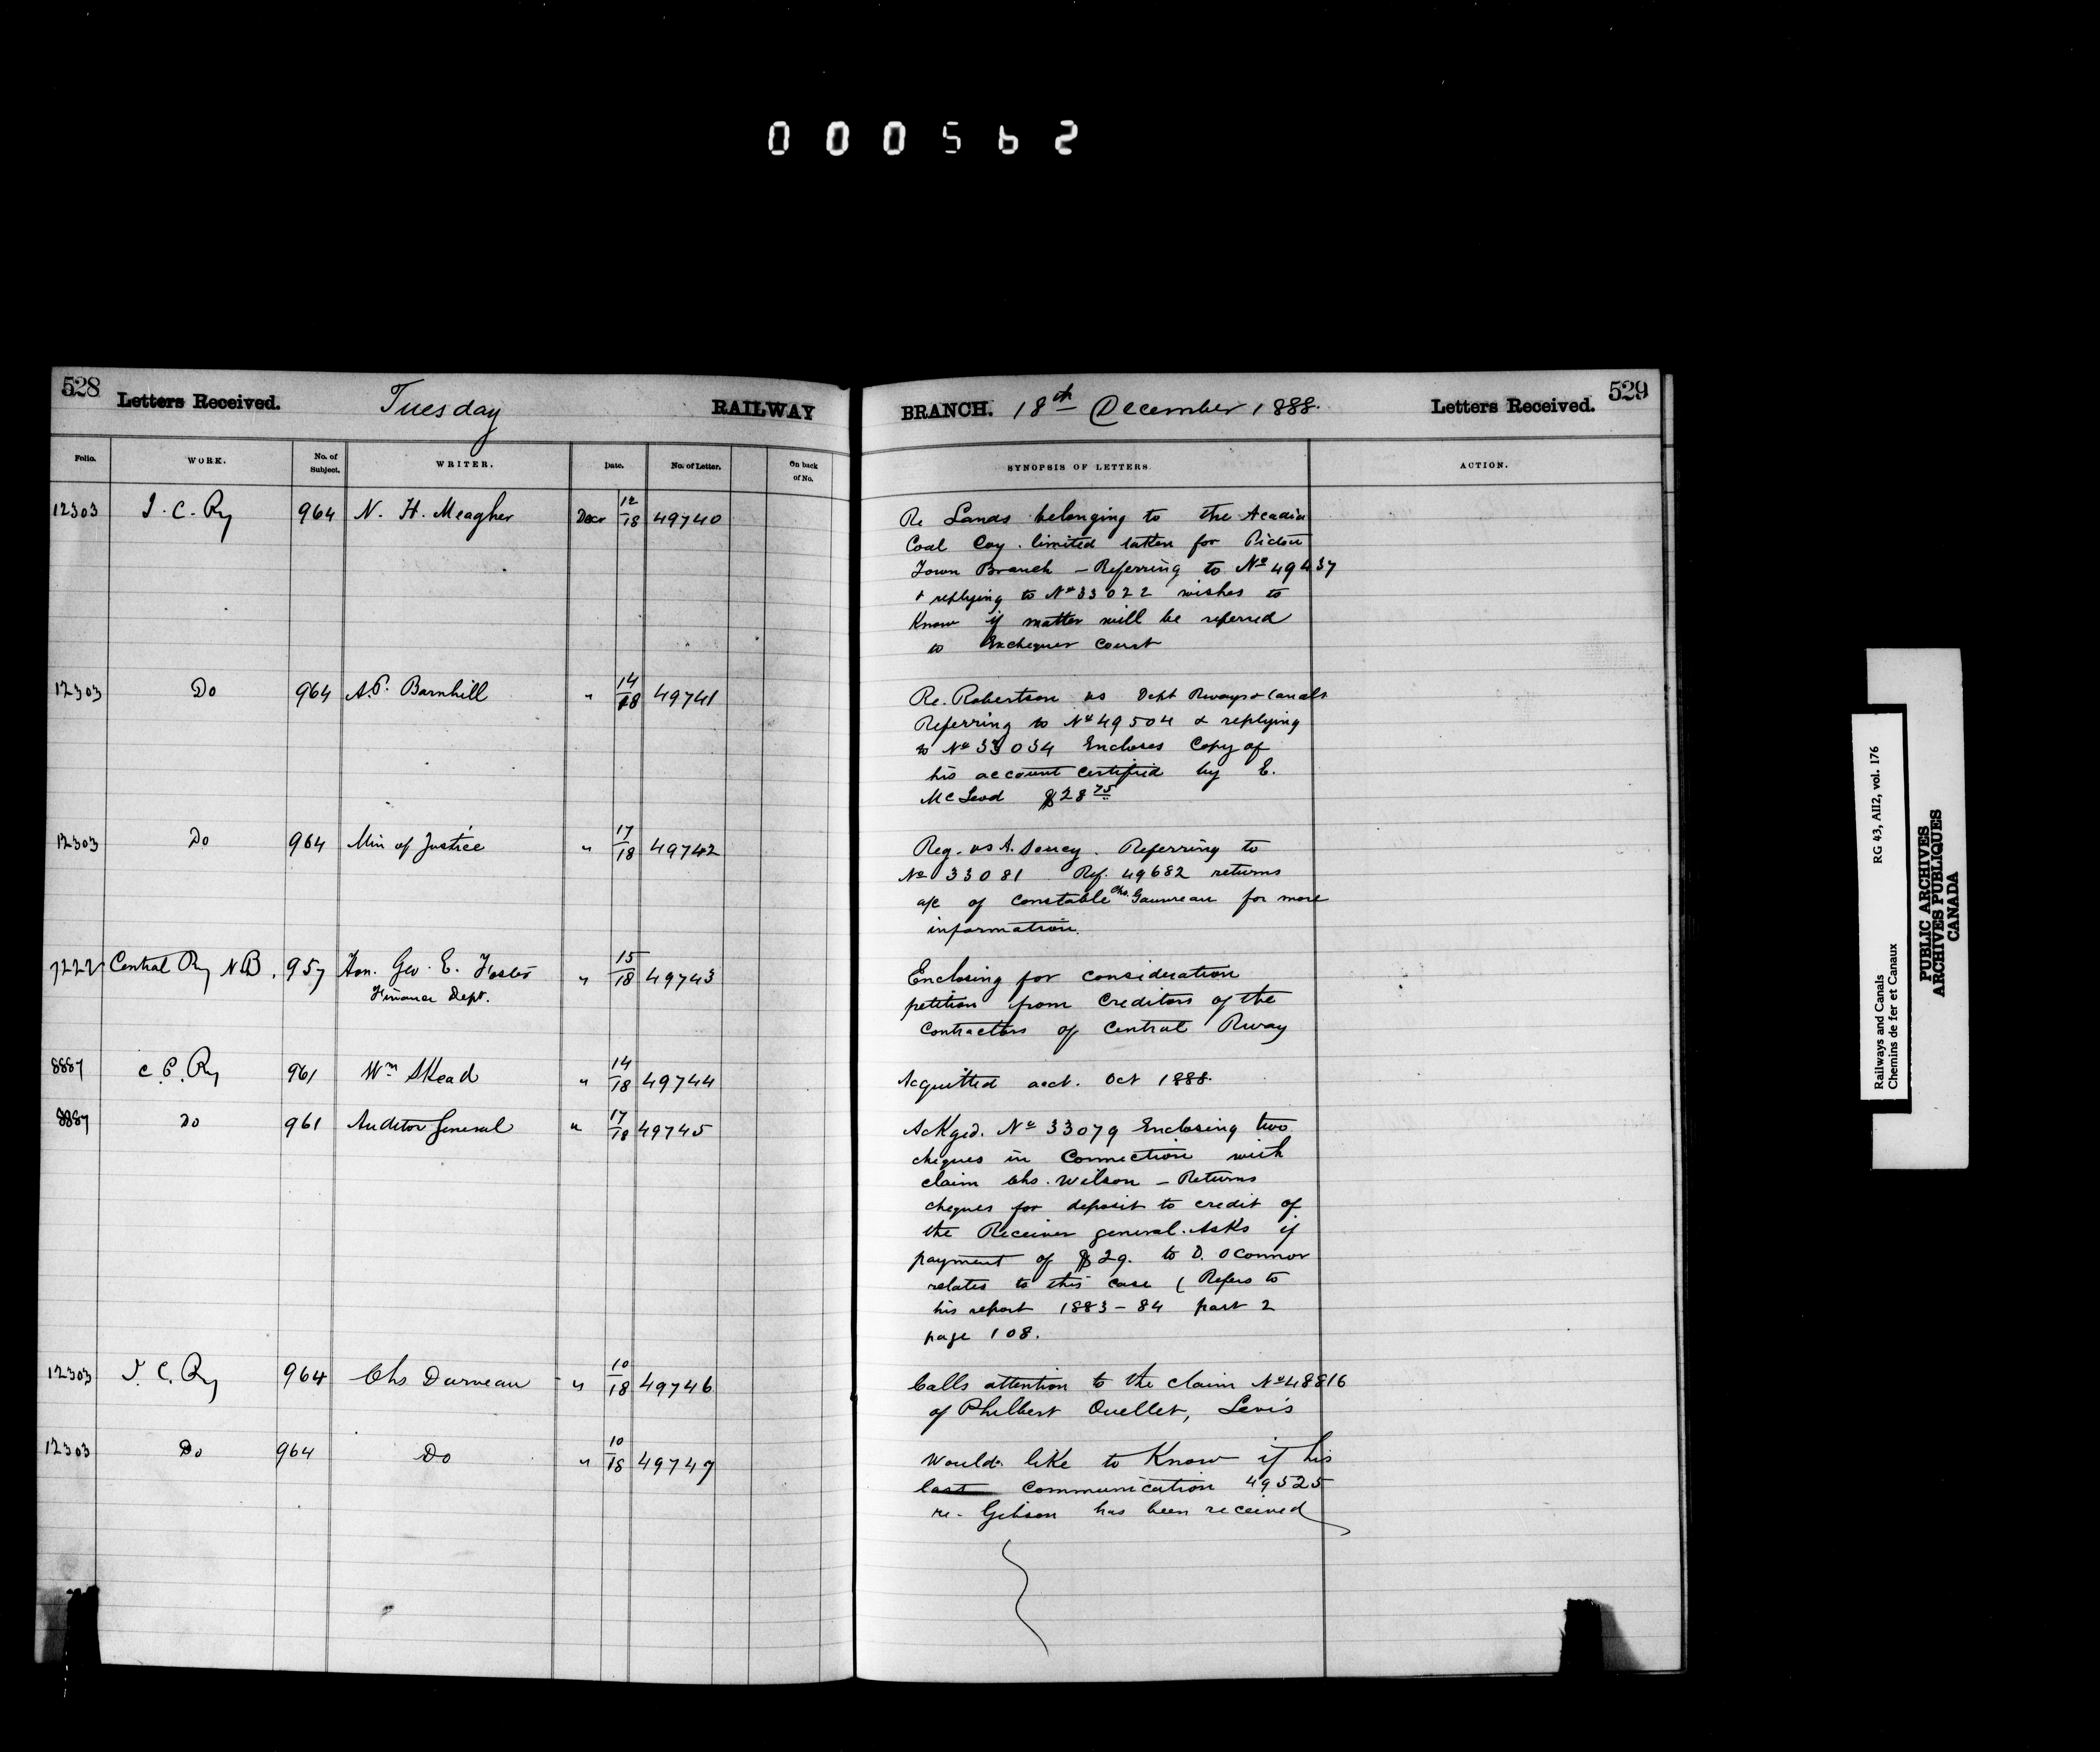 000562
528 Letters Received. Tuesday RAILWAY
Folio. WORK. No. of Subject. WRITER. Date. No. of Letter. On back of No.
12303 I. C. Ry 964 N. H. Meagher Decr 12/18 49740
12303 Do 964 A.P. Barnhill " 14/18 49741
12303 Do 964 Min of Justice " 17/18 49742
7222 Central Ry N.B. 957 Hon. Geo. E. Foster " 15/18 49743
Finance Dept.
8887 C. P. Ry 961 Wm Skead " 14/18 49744
8887 Do 961 Auditor General " 17/18 49745
12303 I. C. Ry 964 Chs Darveau " 10/18 49746
12303 Do 964 Do " 10/18 49747
BRANCH. 18th December 1888. Letters Received. 529
SYNOPSIS OF LETTERS. ACTION.
Re Lands belonging to the Acadia
Coal Coy. limited taken for Pictou
Town Branch – Referring to No 49437
& replying to No 33022 wishes to
Know if matter will be referred
to Exchequer Court
Re. Robertson vs Dept Rways & Canals
Referring to No 49504 & replying
to No 33034 Encloses Copy of
his account certified by E.
McLeod $28 75
Reg. vs A. Soucy. Referring to
No 33081 Ref. 49682 returns
a/c of Constable Chs. Gauvreau for more
information.
Enclosing for consideration
petition from Creditors of the
Contractors of Central Rway
Acquitted acct. Oct 1888.
Ackged. No 33079 Enclosing two
cheques in Connection with
claim Chs. Wilson – Returns
cheques for deposit to credit of
the Receiver general. Asks if
payment of $29. to D. OConnor
relates to this case ( Refers to
his report 1883–84 part 2
page 108.
Calls attention to the claim No 48816
of Philbert Ouellet, Levis
Would like to Know if his
last Communication 49525
re. Gibson has been received
Railways and Canals RG 43, AII2, vol. 176
Chemins de fer et Canaux
PUBLIC ARCHIVES
ARCHIVES PUBLIQUES
CANADA